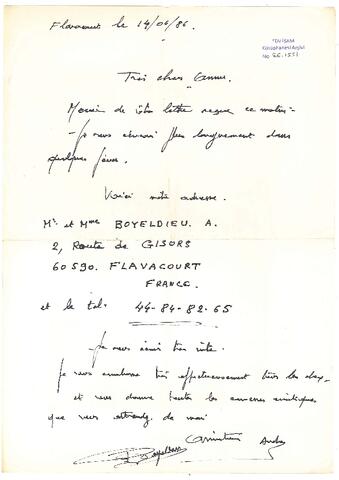 Flavacourt le 14/06/86.
TDVİSAM
Kütüphanesi Arşivi
No 2E.1551
Très chers
Merci de votre lettre reçue ce matin :-
- Je vous écrirai plus longuement dans
quelques jours.
Voici notre adresse.
Mr et Mme BOYELDIEU. A.
2, Route de GISORS
60590. FLAVACOURT
FRANCE.
et le tel. 44-84-82-65
Je vous écris très vite.
Je vous embrasse très affectueusement tous les deux
et vous donne toutes les
que vous attendez de moi
André